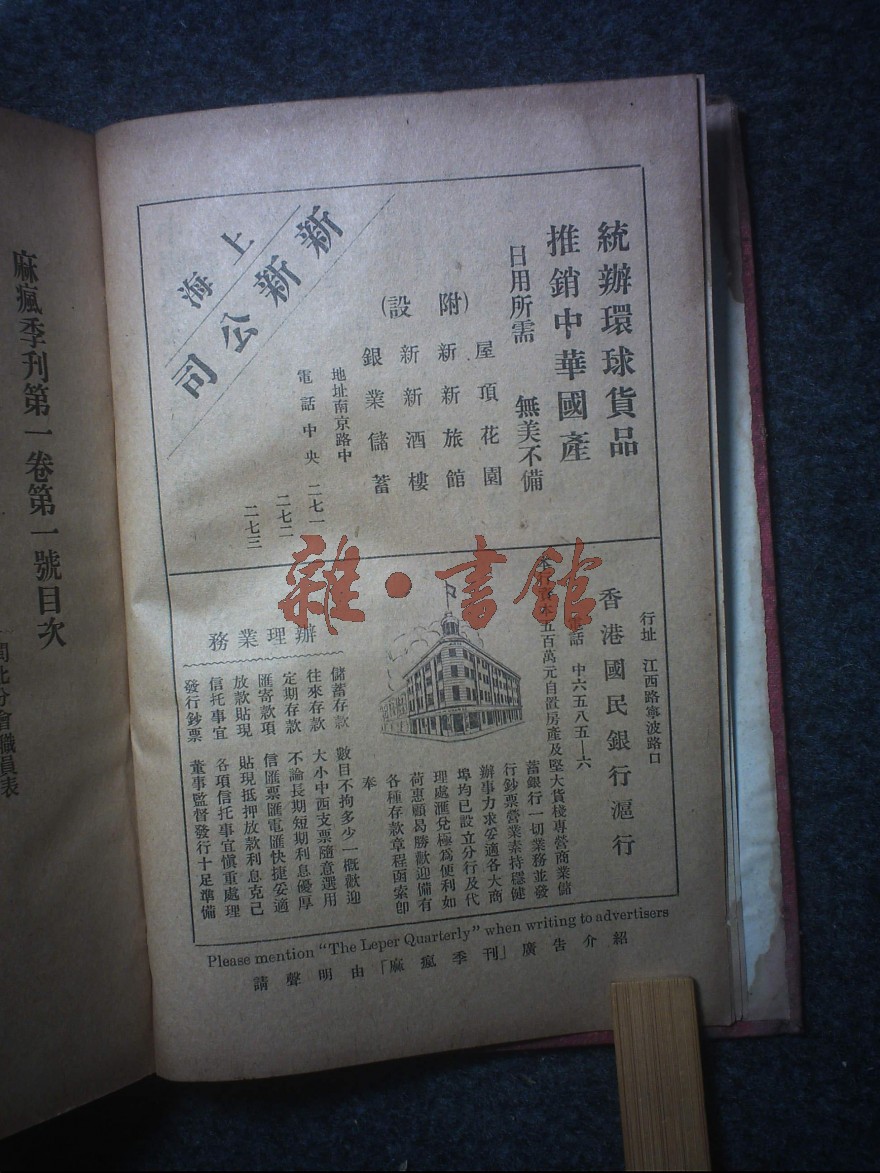 統辦環球貨品
推銷中華國產
日用所需 無美不備
(附設)
屋頂花園
新新旅館
新新酒樓
銀業儲蓄
地址南京路中
電話中央 二七一
二七二
二七三
上海
新新公司
行址 江西路寧波路口
香港國民銀行滬行
電話 中六五八五—六
五百萬元自置房產及堅大貨棧專營商業儲
蓄銀行一切業務並發
行鈔票營業素持穩健
辦事力求妥適各大商
埠均已設立分行及代
理處匯兌極為便利如
荷惠顧曷勝歡迎備有
各種存款章程函索卽
奉
辦理業務
儲蓄存款 數目不拘多少一概歡迎
往來存款 大小中西支票隨意選用
定期存款 不論長期短期利息優厚
匯寄款項 信匯票匯電匯快捷妥適
放款貼現 貼現抵押放款利息克己
信托事宜 各項信托事宜愼重處理
發行鈔票 董事監督發行十足準備
Please mention "The Leper Quarterly" when writing to advertisers
請聲明由「麻瘋季刊」廣告介紹
麻瘋季刊第一卷第一號目次
分會職員表
雜·書館